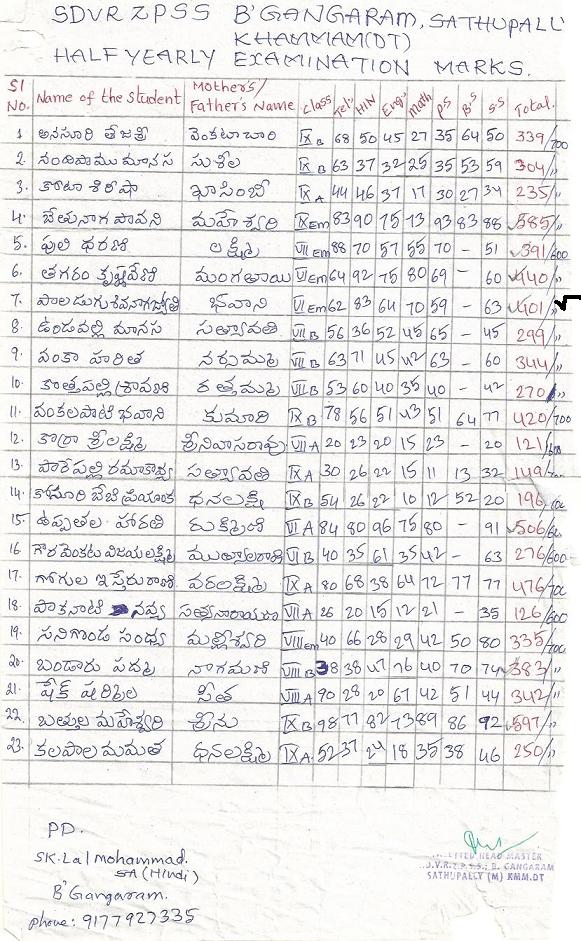 SDVR ZPSS B'GANGARAM, SATHUPALLY
KHAMMAM(DT)
HALF YEARLY EXAMINATION MARKS.
Sl No. Name of the Student Mother's/ Father's Name Class Tel HIN Eng Math PS BS SS Total.
1 అనసూరి తేజశ్రీ వెంకటాచారి IX B 68 50 45 27 35 64 50 339/700
2. నందిపాము మానస సుశీల IX B 63 37 32 25 35 53 59 304/"
3. కోటా శిరీషా ఖాసింబీ IX A 44 46 37 17 30 27 34 235/"
4. బేతు నాగ పావని మహేశ్వరి IX Em 83 90 75 73 93 83 88 585/"
5. పులి ధరణి లక్ష్మి VII Em 88 70 57 55 70 - 51 391/600
6. తగరం కృష్ణవేణి మంగతాయి VI Em 64 92 75 80 69 - 60 440/"
7. పాలడుగు శివనాగజ్యోతి భవాని VI Em 62 83 64 70 59 - 63 401/"
8. ఉండపల్లి మానస సత్యావతి VII B 56 36 52 45 65 - 45 299/"
9. వంకా హరిత నర్సమ్మ VII B 63 71 45 42 63 60 344/"
10. కొత్తపల్లి శ్రావణి రత్తమ్మ VII B 53 60 40 35 40 - 42 270/"
11. వంకలపాటి భవాని కుమారి IX B 78 56 51 43 51 64 77 420/700
12. కొర్రా శ్రీలక్ష్మి శ్రీనివాసరావు VII A 20 23 20 15 23 - 20 121/
13. పారేపల్లి రమాకావ్య సత్యావతి IX A 30 26 22 15 11 13 32 149/
14. బేబి ప్రియాంక ధనలక్ష్మి IX B 54 26 22 10 12 52 20 196/
15. ఉప్పతల హారతి రుక్మిణి VI A 84 80 96 75 80 - 91 506/
16 గౌర వెంకట విజయలక్ష్మి ముత్యాలరాణి VI B 40 35 61 35 42 - 63 276/600
17. గోగుల ఇస్తేరురాణి వరలక్ష్మి IX A 80 68 38 64 72 77 77 476/700
18. పాకనాటి నవ్య సత్యనారాయణ VII A 26 20 15 12 21 - 35 126/600
19. సనిగొండ సంధ్య మల్లీశ్వరి VIII Em 40 66 28 29 42 50 80 335/700
20. బండారు పద్మ నాగమణి VIII B 38 38 47 76 40 70 74 383/"
21. షేక్ షర్మిల సీత VIII A 90 28 20 67 42 51 44 342/"
22. బత్తుల మహేశ్వరి శ్రీను IX B 98 77 82 73 89 86 92 597/"
23. కలపాల మమత ధనలక్ష్మి IX A 52 37 24 18 35 38 46 250/"
PD.
SK. Lal Mohammad.
SA (Hindi)
B'Gangaram.
phone: 9177927335
HEAD MASTER
S.D.V.R.Z.P.S.S., B. GANGARAM
SATHUPALLY (M) KMM.DT